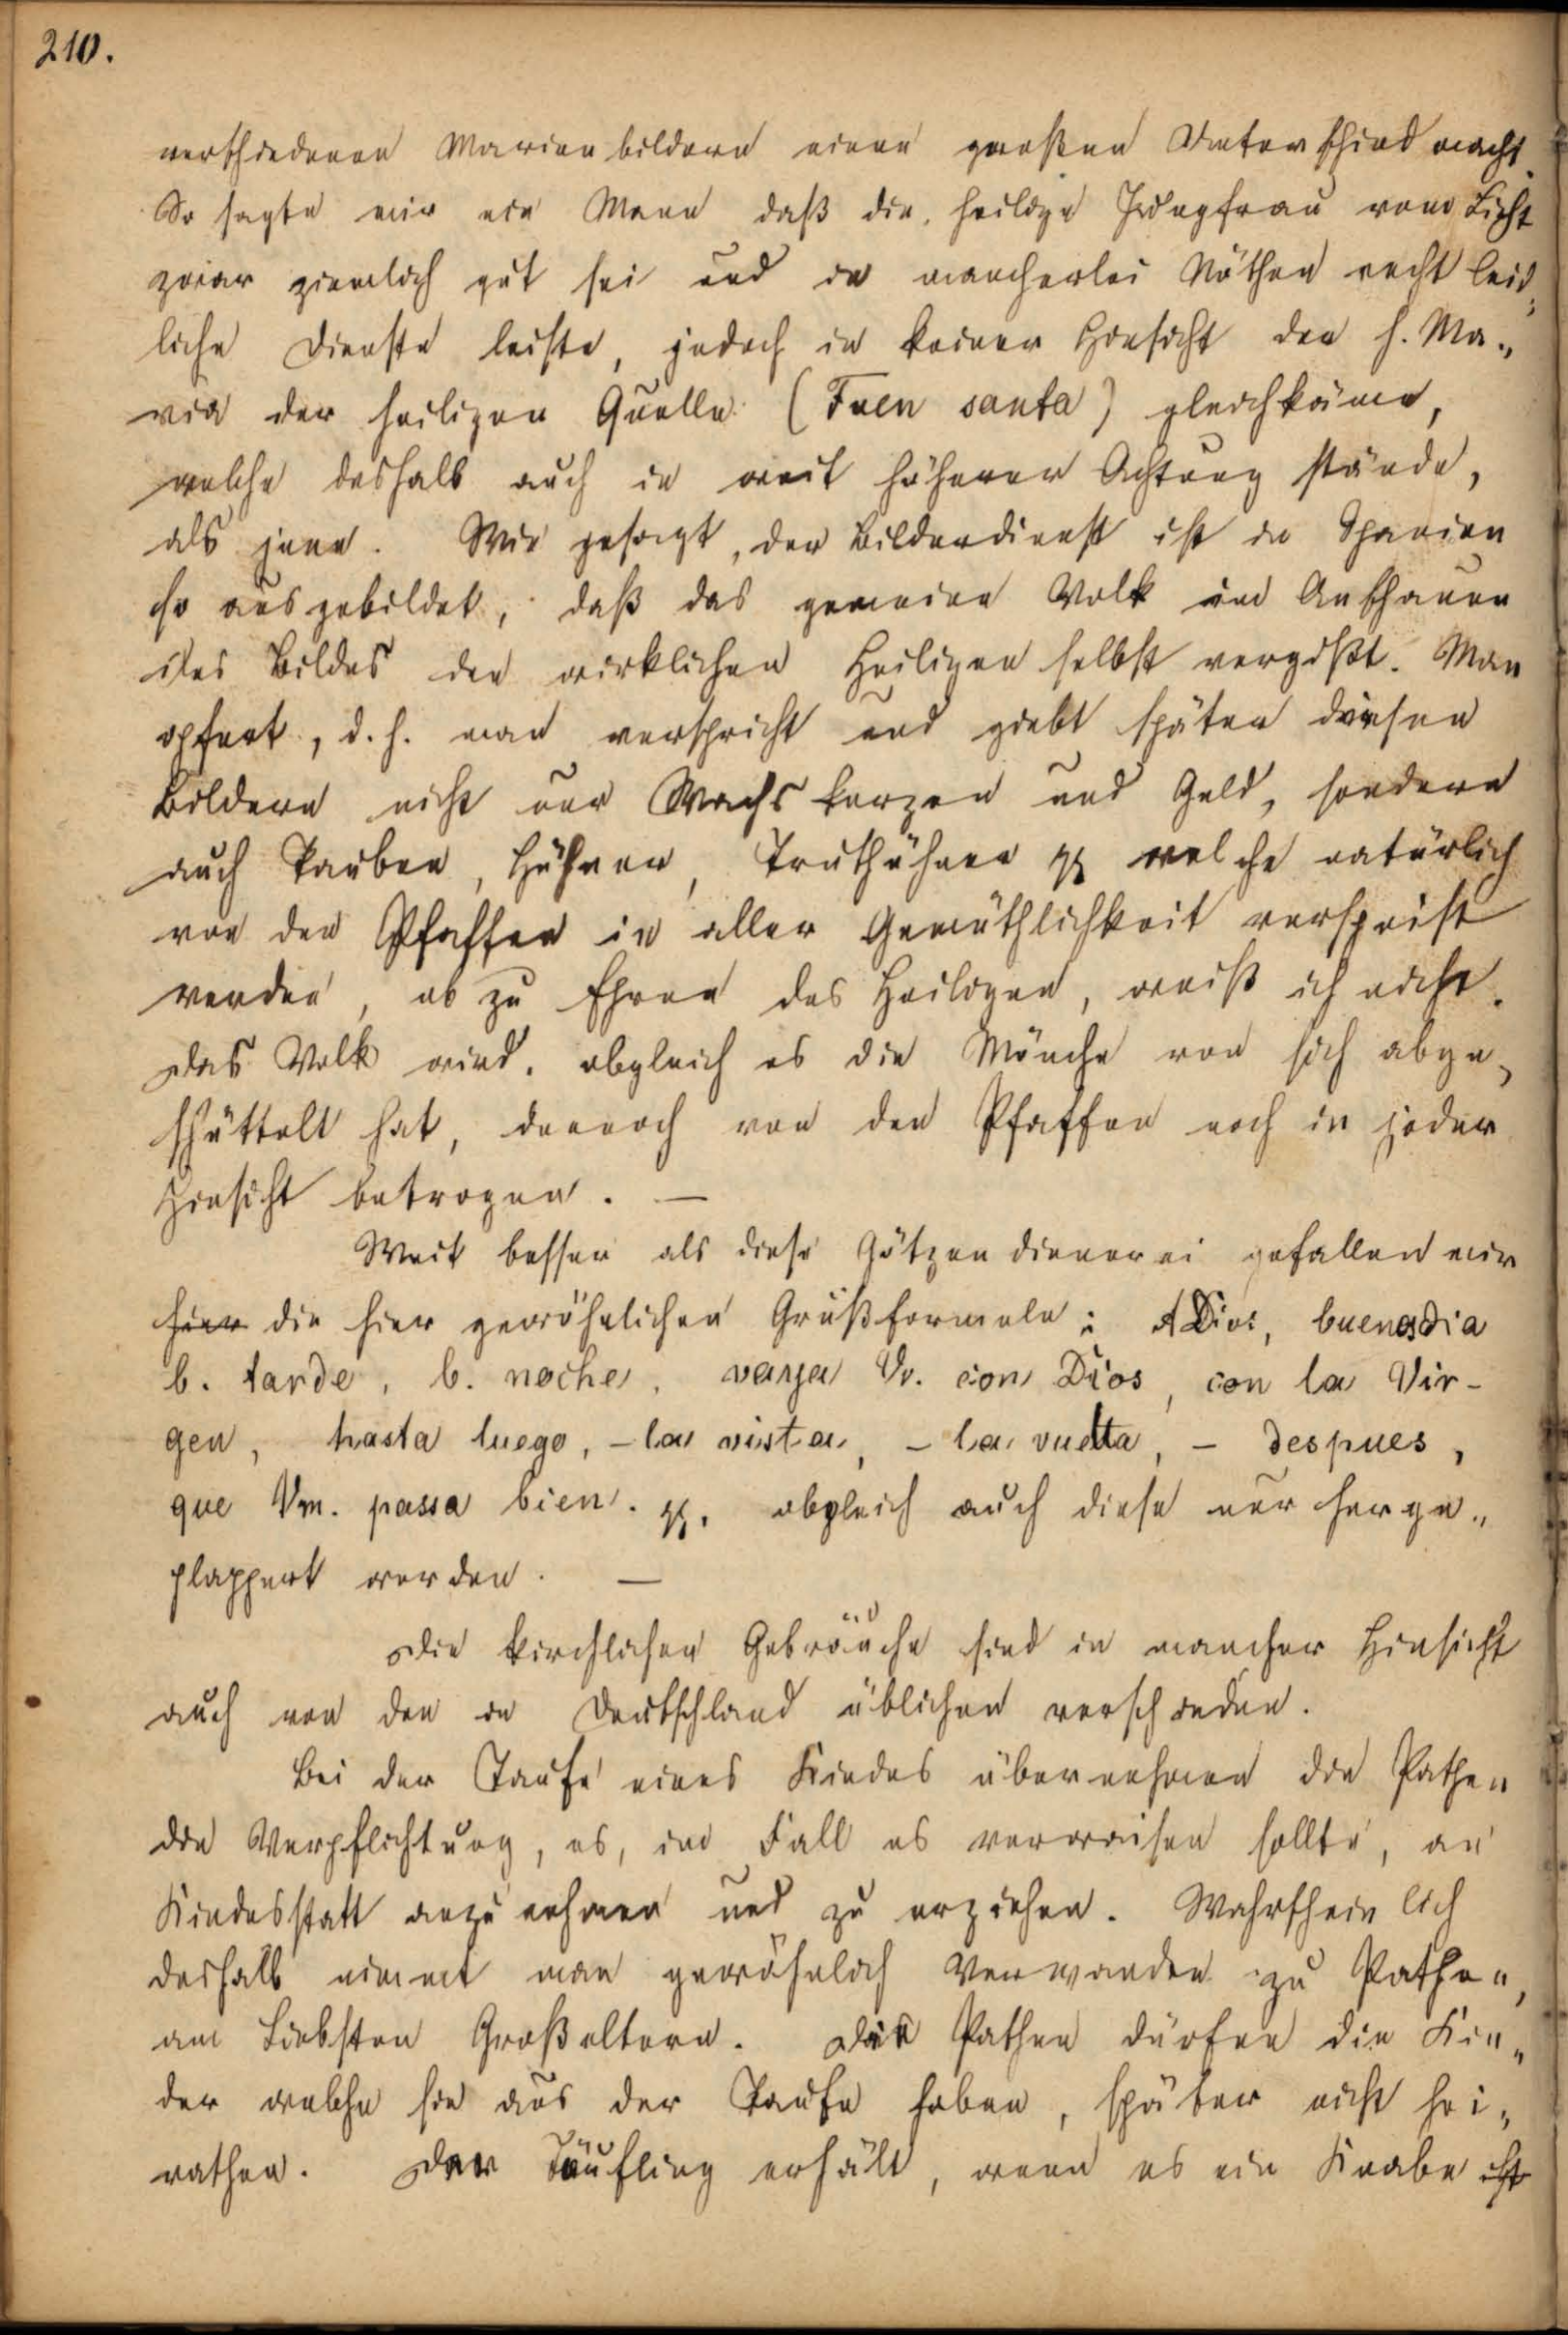 210.
verschiedenen Marienbildern einen großen Unterschied macht.
So sagte mir ein Mann daß die heilige Jungfrau vom Licht
zwar ziemlich gut sei und in mancherlei Nöthen recht leid„
liche Dienste leiste, jedoch in keiner Hinsicht der h. Ma„
ria der heiligen Quelle (Fuen santa) gleichkäme,
welche deshalb auch in weit höherer Achtung stände,
als jene. Wie gesagt, der Bilderdienst ist in Spanien
so ausgebildet, daß das gemeine Volk im Anschauen
des Bildes den wirklichen Heiligen selbst vergißt. Man
opfert, d. h. man verspricht und giebt später diesen
Bildern nicht nur Wachskerzen und Geld, sondern
auch Tauben, Hühner, Truthühner pp welche natürlich
von den Pfaffen in aller Gemüthlichkeit verspeist
werden, ob zu Ehren des Heiligen, weiß ich nicht.
Das Volk wird, obgleich es die Mönche von sich abge„
schüttelt hat, dennoch von den Pfaffen noch in jeder
Hinsicht betrogen. —
Weit besser als diese Götzendienerei gefallen mir
hier die hier gewöhnlichen Grußformeln: A Dios, buenas dia
b. tarde, b. noche, vaya V. con Dios, con la Vir-
gen, hasta luego, – la vista, – la vuelta, – despues,
que Vm. passa bien. pp. obgleich auch diese nur herge„
plappert werden. —
Die kirchlichen Gebräuche sind in mancher Hinsicht
auch von den in Deutschland üblichen verschieden.
Bei der Taufe eines Kindes übernehmen die Pathen
die Verpflichtung, es, im Fall es verwaisen sollte, an
Kindesstatt anzunehmen und zu erziehen. Wahrscheinlich
deshalb nimmt man gewöhnlich Verwanden zu Pathen,
am Liebsten Großeltern. Die Pathen dürfen die Kin„
der welche sie aus der Taufe haben, später nicht hei„
rathen. Der Täufling erhält, wenn es ein Knabe ist